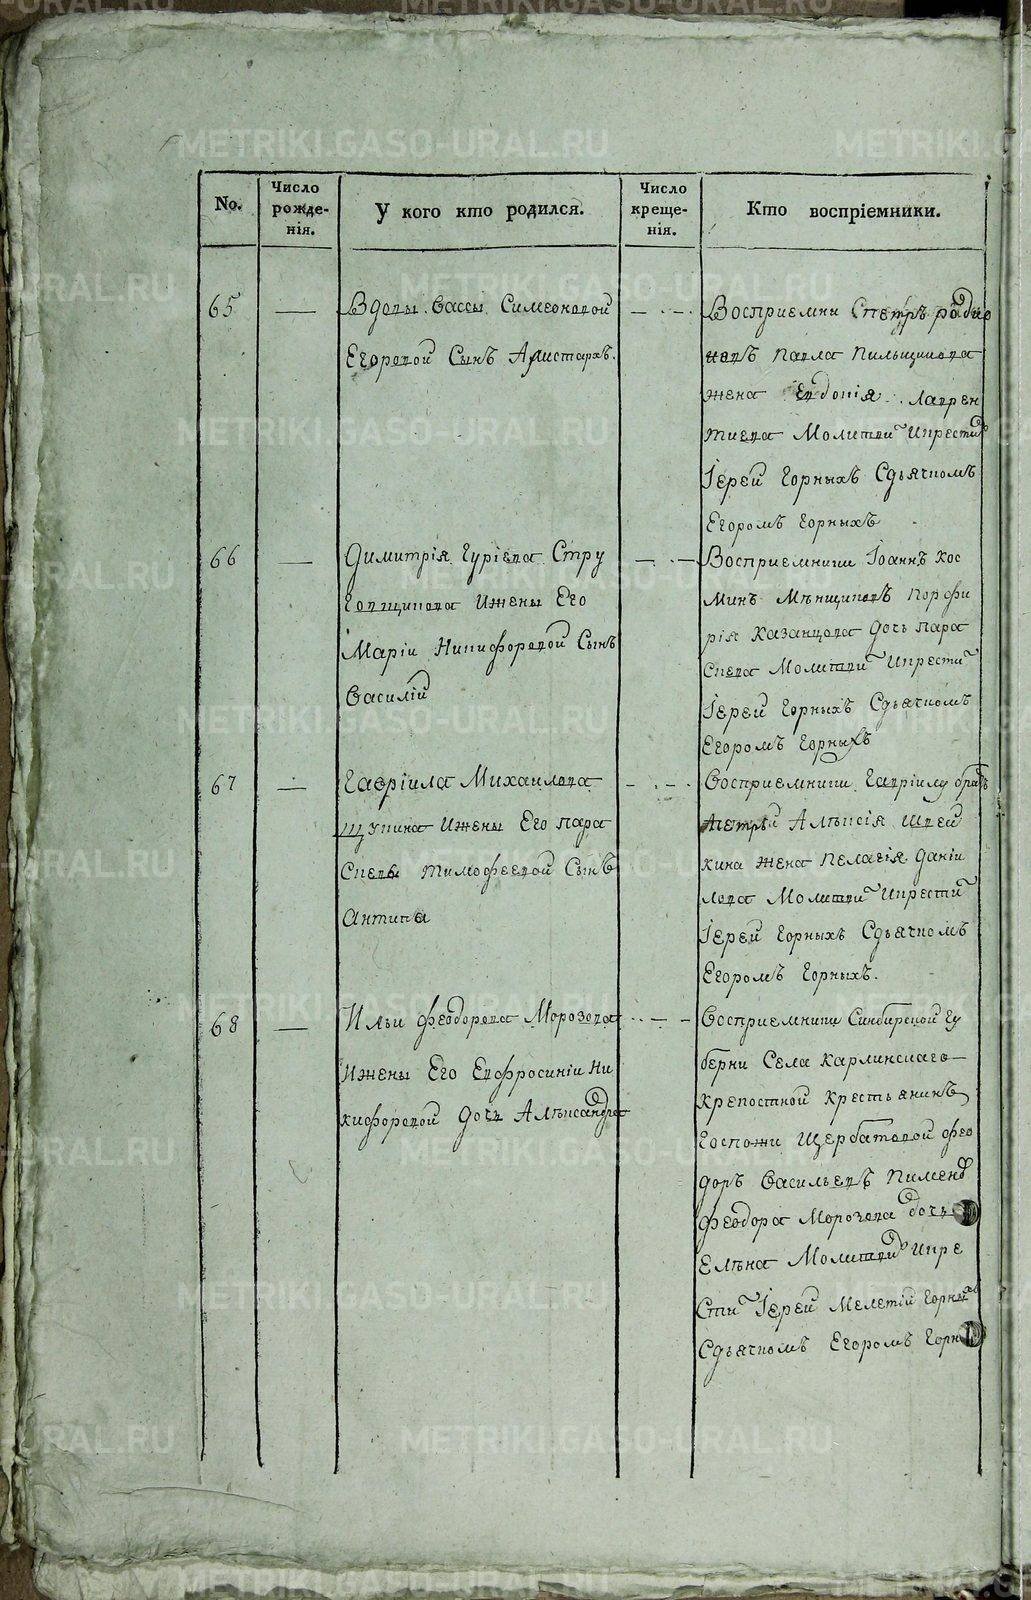 No.
Число рожде-нія.
У кого кто родился.
Число креще-нія.
Кто воспріемники.
65
Вдовы Вассы Симеоновой
Егоровой Сынъ Аристархъ.
Восприемни Спетръ родио
новъ Павла Пильщикова
жена Евдокія Лаврен
тиева Молитви Икрести
Іерей Горныхъ Сдьячкомъ
Егоромъ Горныхъ
66
Димитрія Гуріева Стру
говщикова Ижены Его
Маріи Никифоровой Сынъ
Василій
Восприемники Іоаннъ Кос
минъ Мѣнщиковъ Порфи
рія Казанцова дочь Пара
скева Молитви Икрести
Іерей Горныхъ Сдьячкомъ
Егоромъ Горныхъ
67
Гавріила Михаилова
Щукина Ижены Его Пара
скевы Тимофеевой Сынъ
Антипа
Восприемники Гавріилу братъ
Алѣксія Швей
кина жена Пелагія Даніи
лова Молитви Икрести
Іерей Горныхъ Сдьячкомъ
Егоромъ Горныхъ.
68
Ильи Феодорова Морозова
Ижены Его Евфросиніи Ни
кифоровой дочь Алѣксандра
Восприемники Синбирской Гу
берни Села Карлинскаго
Крепостной Крестьянинъ
Госпожи Щербатовой Фео
доръ Васильевъ Пимено
Феодора Морозова дочь
Елѣна Молитви Икре
сти Іерей Мелетій Горныхъ
Сдьячкомъ Егоромъ Горн
METRIKI.GASO-URAL.RU